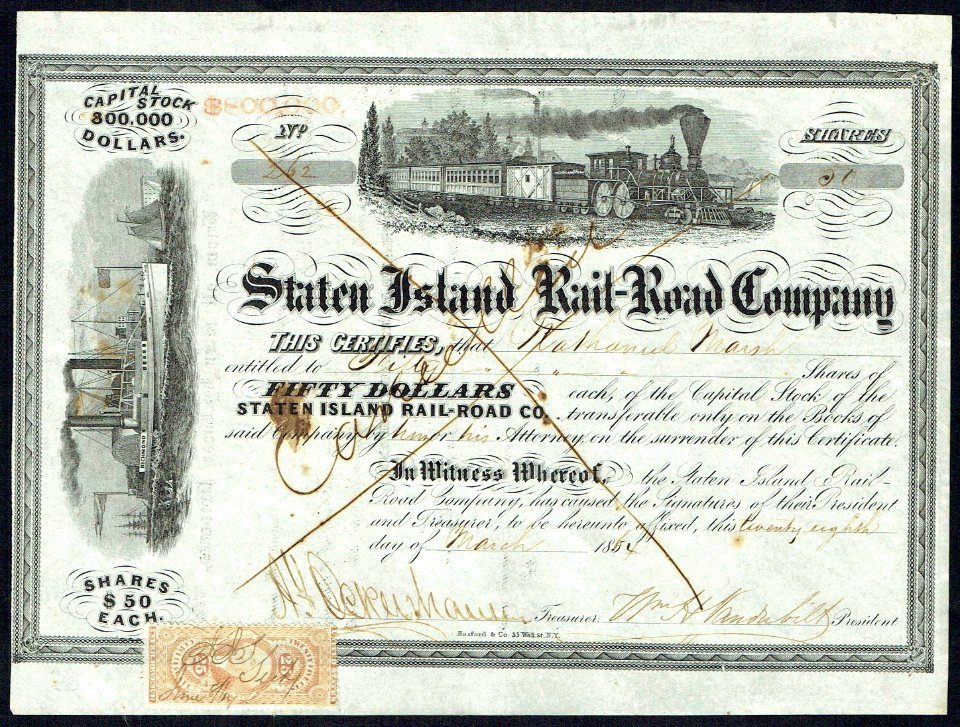 CAPITAL STOCK
800,000
DOLLARS.
$800,000.
No
262
SHARES
50
Staten Island Rail-Road Company
THIS CERTIFIES, that Nathaniel Marsh
entitled to Fifty Shares of
FIFTY DOLLARS each, of the Capital Stock of the
STATEN ISLAND RAIL-ROAD CO. transferable only on the Books of
said Company by him or his Attorney, on the surrender of this Certificate.
Cancelled
In Witness Whereof, the Staten Island Rail-
Road Company, has caused the Signatures of their President
and Treasurer, to be hereunto affixed, this twenty eighth
day of March 1864
Treasurer. Wm H Vanderbilt President
Hosford & Co. 55 Wall st. N.Y.
SHARES
$50
EACH.
25 25